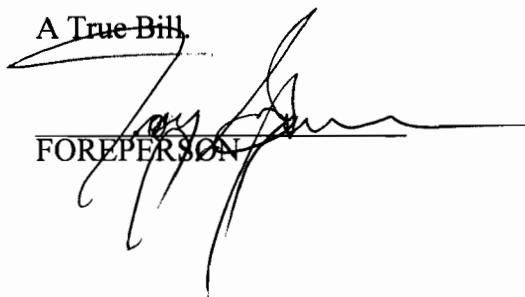 A True Bill.
FOREPERSON